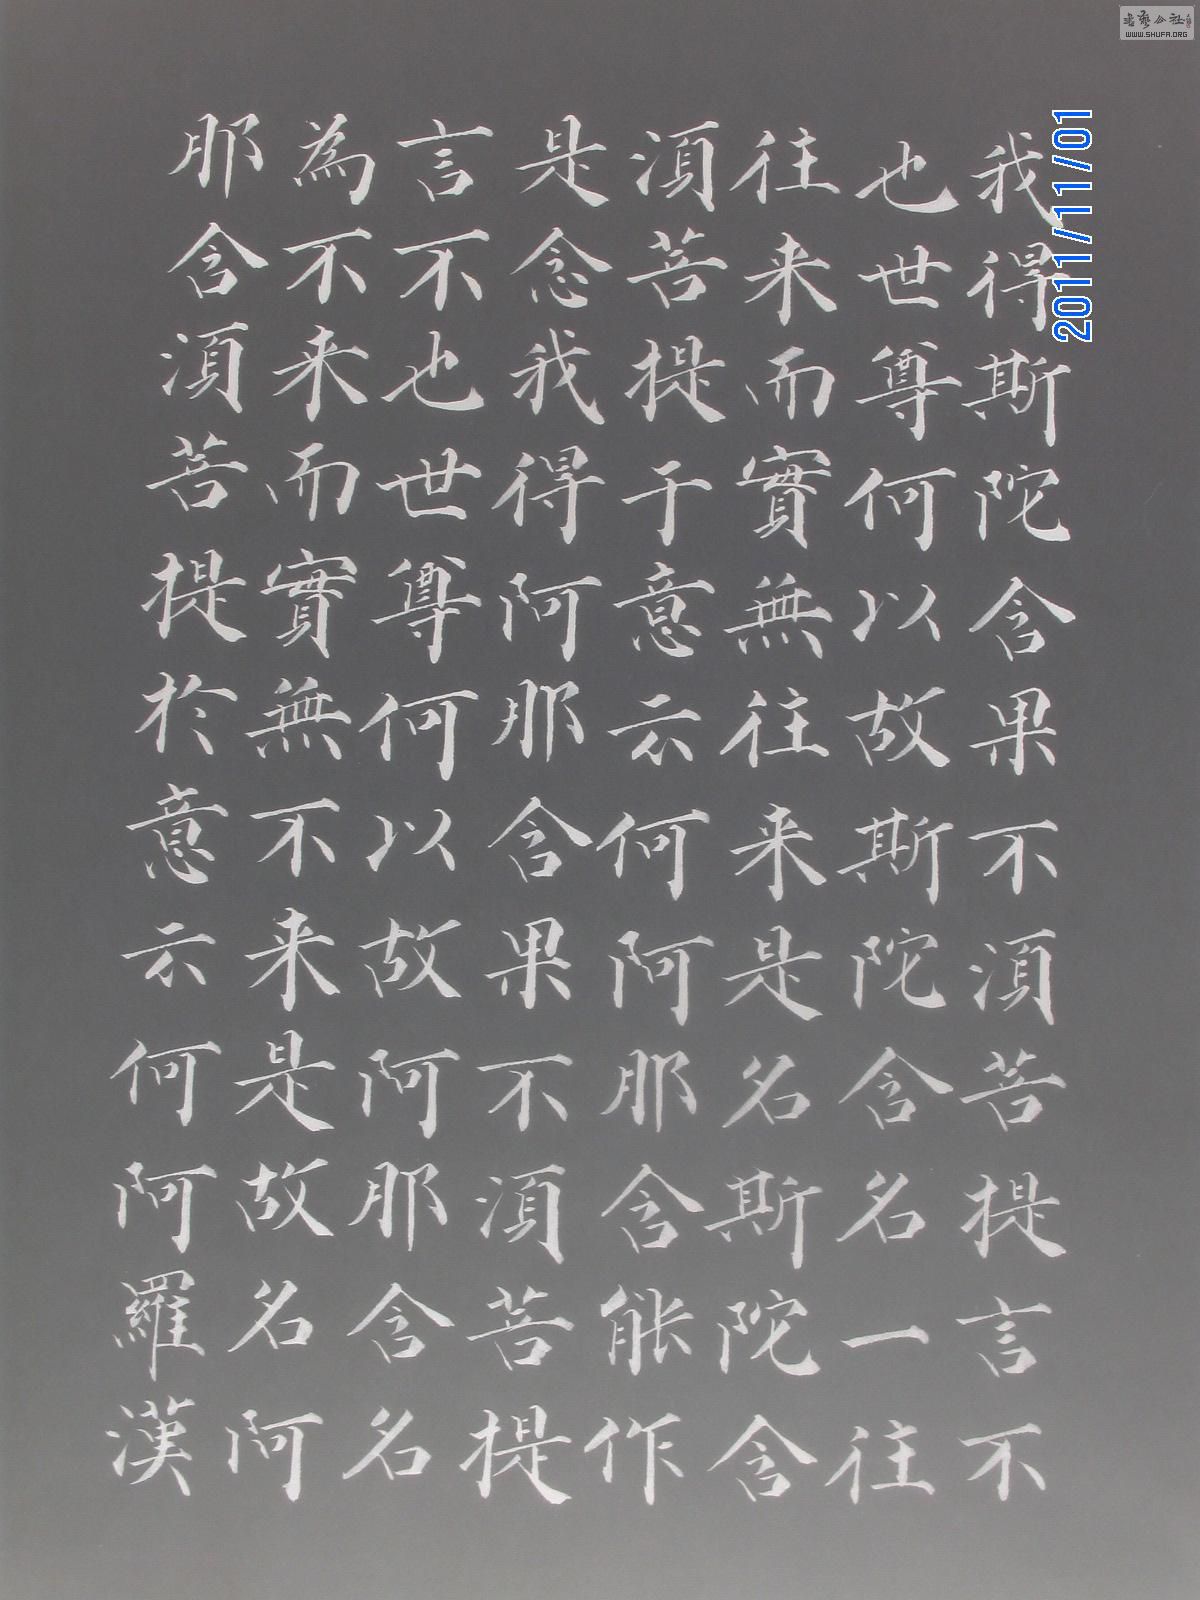 我得斯陀含果不須菩提言不
也世尊何以故斯陀含名一往
往来而實無往来是名斯陀含
須菩提于意云何阿那含能作
是念我得阿那含果不須菩提
言不也世尊何以故阿那含名
為不来而實無不来是故名阿
那含須菩提於意云何阿羅漢
2011/11/01
書藝公社
WWW.SHUFA.ORG